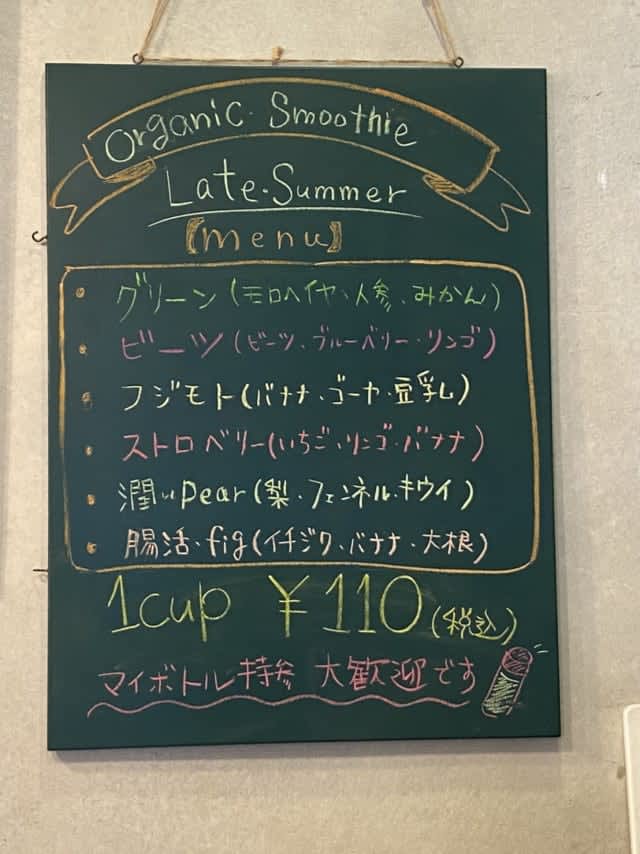 Organic・Smoothie
Late・Summer
【menu】
・グリーン(モロヘイヤ、人参、みかん)
・ビーツ(ビーツ、ブルーベリー・リンゴ)
・フジモト(バナナ、ゴーヤ・豆乳)
・ストロベリー(いちご、リンゴ・バナナ)
・潤いpear(梨・フェンネル・キウイ)
・腸活・fig(イチジク、バナナ・大根)
1cup ¥110(税込)
マイボトル持参 大歓迎です